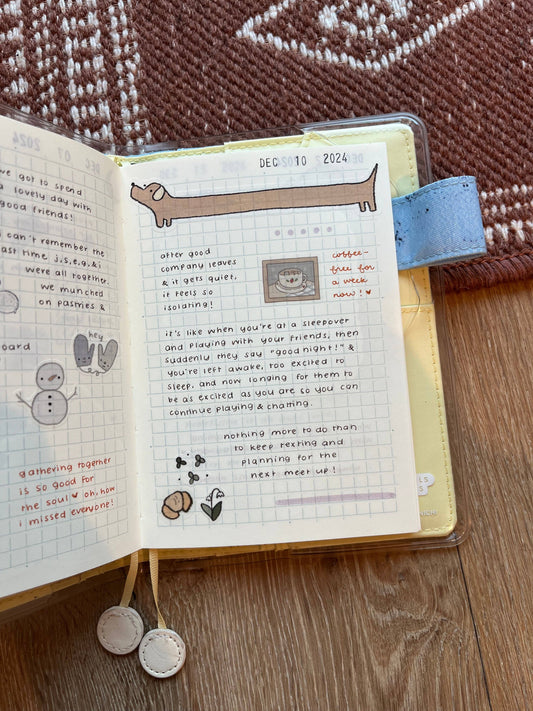 ve got to spend
a lovely day with
good friends!
can't remember the
last time j, s, e, g, & i
were all together.
we munched
on pastries &
hey
board
gathering together
is so good for
the soul ♥ oh, how
i missed everyone!
DEC 10 2024
after good
company leaves
& it gets quiet,
it feels so
isolating!
coffee-
free for
a week
now! ♥
it's like when you're at a sleepover
and playing with your friends, then
suddenly they say "good night!" &
you're left awake, too excited to
sleep, and now longing for them to
be as excited as you are so you can
continue playing & chatting.
nothing more to do than
to keep texting and
planning for the
next meet up!